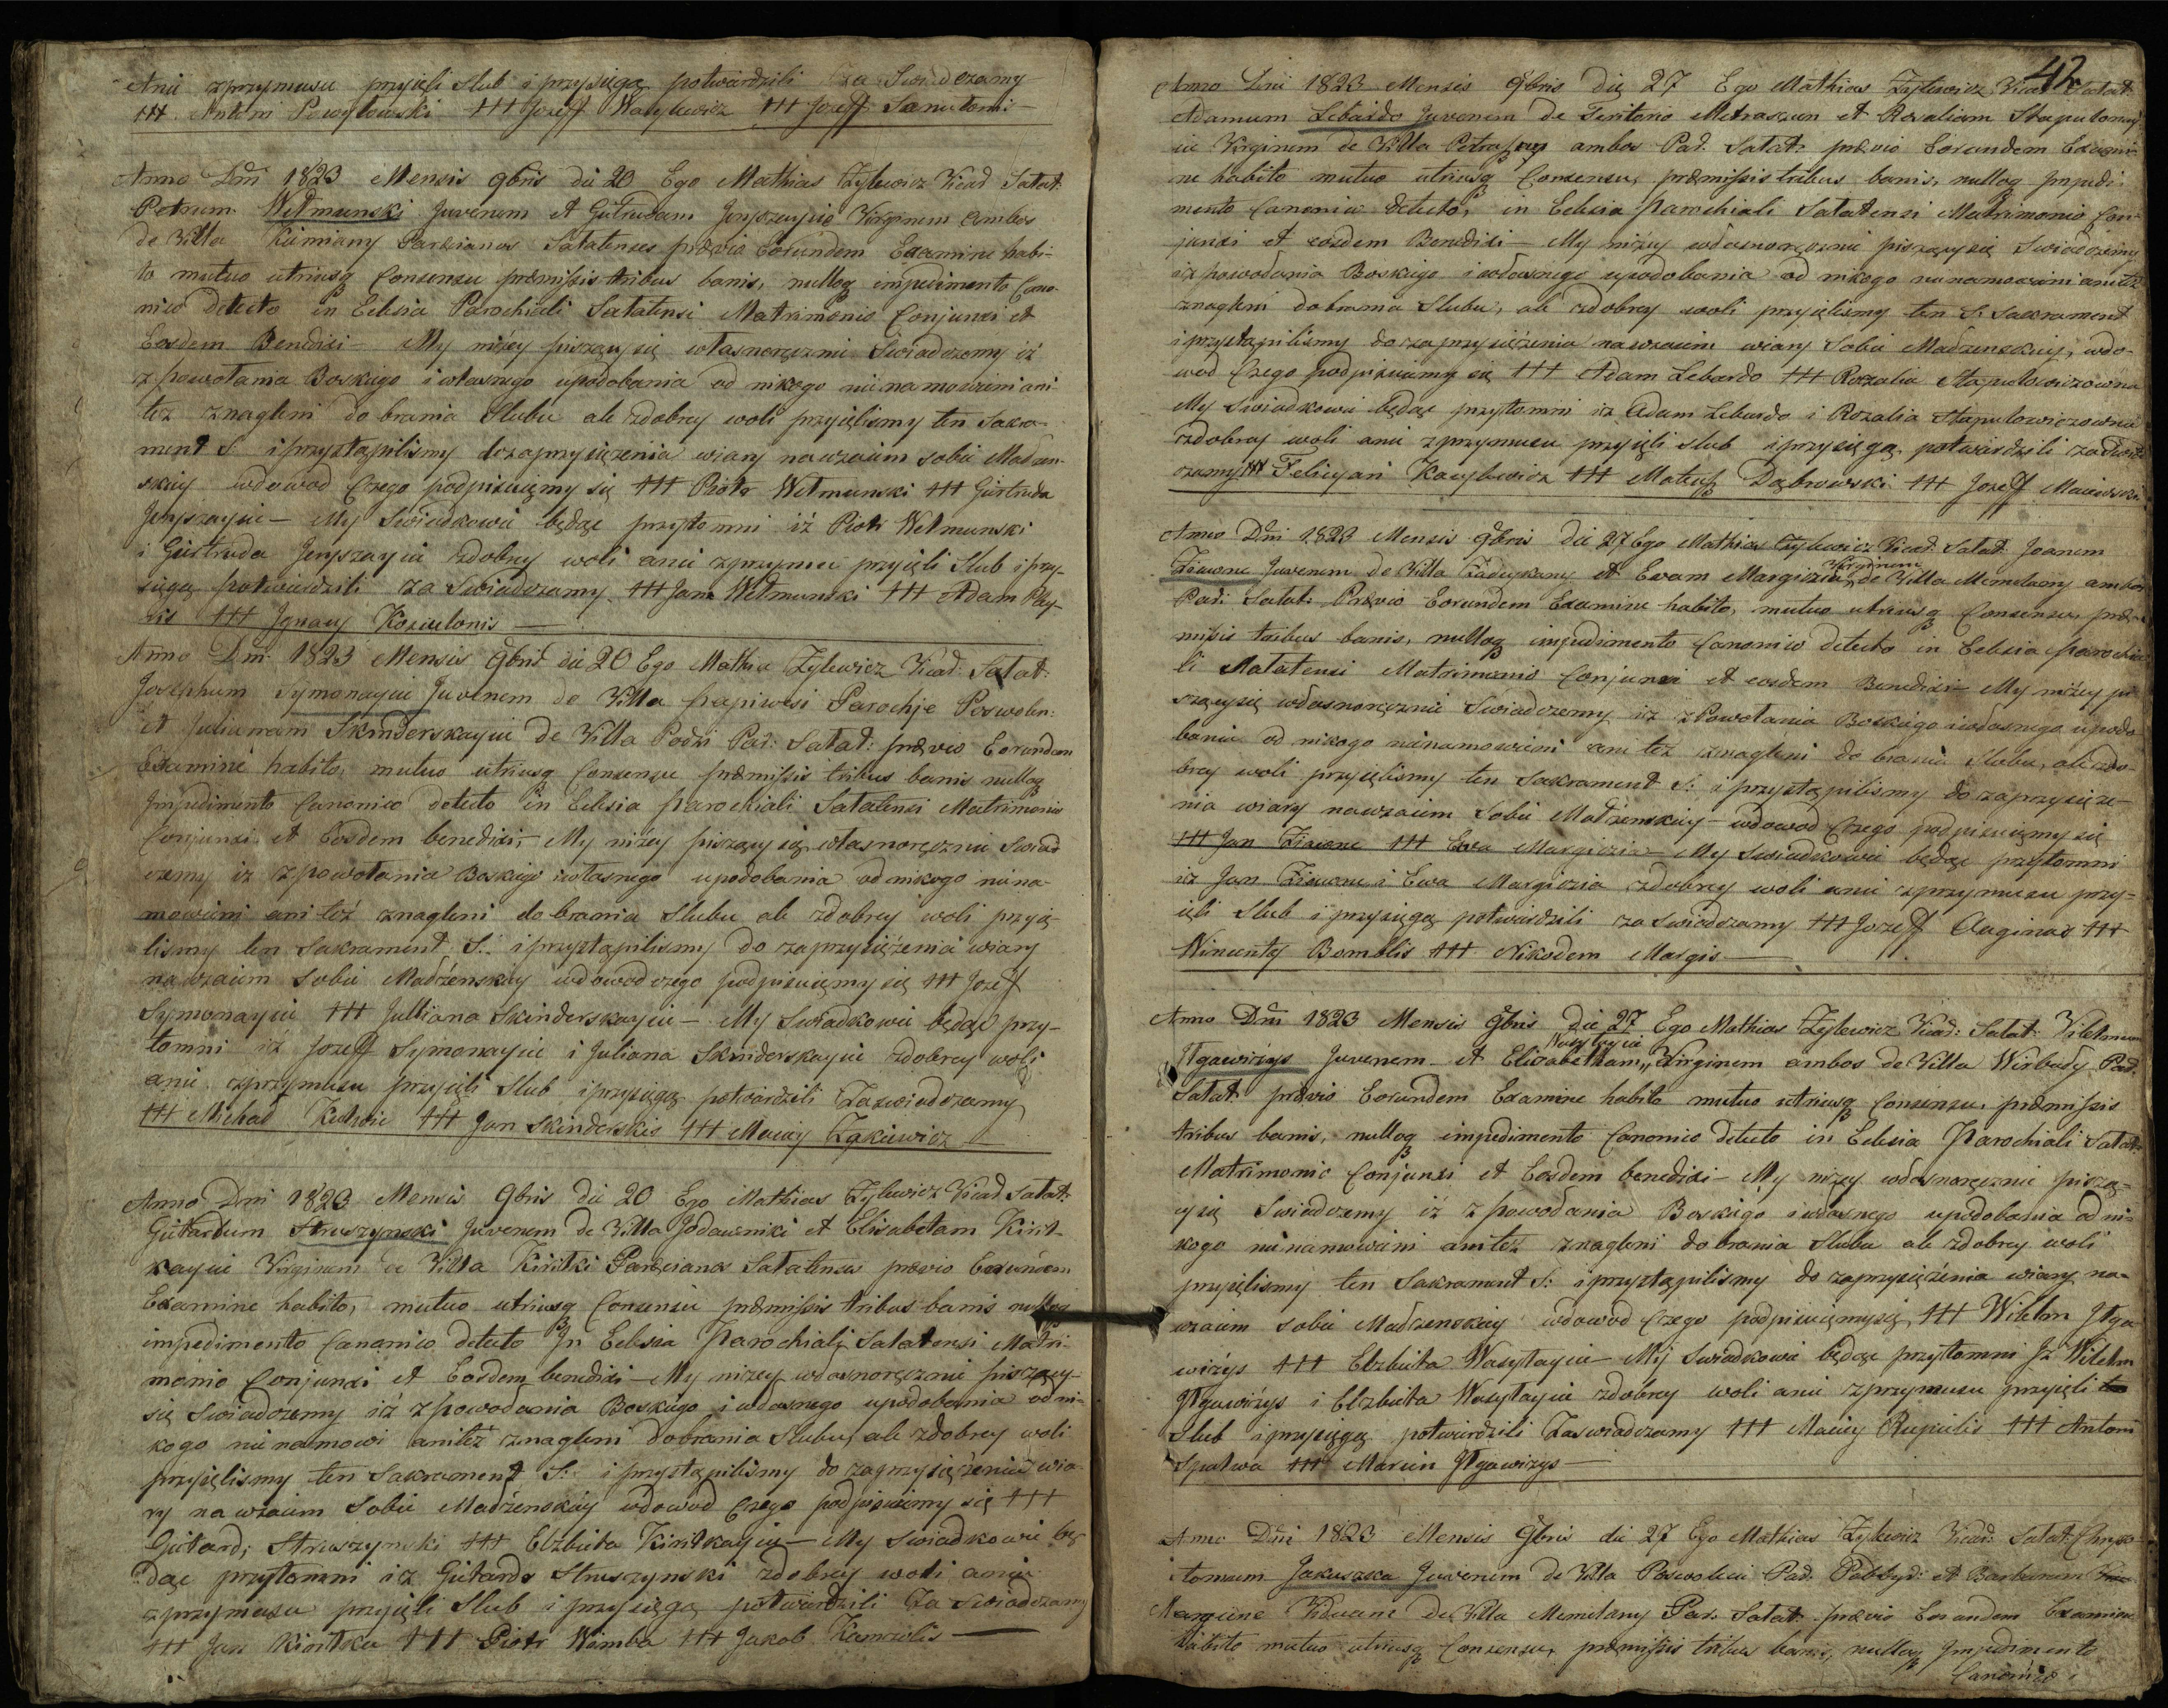 Anii zprzymusu przyięli Slub i przysięgą potwierdzili za Swiadczamy
+++ Antoni Powyłowski +++ Jozeff Wasylewicz +++ Jozeff
Anno Dni 1823 Mensis 9bris die 20 Ego Mathias Zylewicz Vicad Satat:
Petrum Wełmunski Juvenem et Girtrudam Virginem ambos
de Villa Kiemiany Parocianos Satatenses prævio Eorundem Examine habi-
to mutuo utriusq Consensu præmissis tribus banis, nulloq impedimento Cano-
nico detecto in Eclesia Parochiali Satatensi Matrimonio Conjunxi et
Eosdem Benedixi – My niżey piszący się własnoręcznie Swiadczemy iż
z powołania Boskiego i własnego upodobania od nikogo nie namowieni ani
też znagleni do brania Slubu ale zdobrey woli przyięlismy ten Sakra-
ment S: i przystąpilismy do zaprzysiężenia wiary nawzaiem sobie Madżen-
skiey wdowod Czego podpisuięmy się +++ Piotr Wełmunski +++ Girtruda
– My Swiadkowie będąc przytomni iż Piotr Wełmunski
i Girtruda zdobrey woli anii zprzymusu przyięli Slub i przy-
sięgą potwierdzili za Swiadczamy +++ Jan Wełmunski +++ Adam
+++ Ignacy Kozielonis –
Anno Dni 1823 Mensis 9bris die 20 Ego Mathia Zylewicz Vicad: Satat:
Josephum Symonaycie Juvenem de Villa Parochje Poswoln:
et Julianam Skinderskaycie de Villa Podzi Pad: Satat: prævio Eorundem
Examine habito, mutuo utriusq Consensu præmissis tribus banis nulloq
Impedimento Canonico detecto in Eclesia Parochiali Satatensi Matrimonio
Conjunxi et Eosdem benedixi, – My niżey piszący się własnoręcznie Swiad
czemy iż z powołania Boskiego i własnego upodobania od nikogo nie na-
mowieni ani też znagleni do brania Slubu ale zdobrey woli przyię-
lismy ten Sakrament S: i przystąpilismy do zaprzysiężenia wiary
nawzaiem Sobie Madżenskiey wdowod czego podpisuięmy się +++ Jozeff
Symonaycie +++ Julliana Skinderskaycie – My Swiadkowie będąc przy-
tomni iż Jozeff Symonaycie i Juliana Skinderskaycie zdobrey woli
anii zprzymusu przyięli Slub i przysięgą potwierdzili Zaswiadczamy
+++ Michał +++ Jan Skinderskis +++ Maciey Zakiewicz
Anno Dni 1823 Mensis 9bris die 20 Ego Mathias Zylewicz Vicad Satat:
Gietardum Struszynski Juvenem de Villa Jodawniki et Elisabetam Kirst-
kaycie Virginem de Villa Kiristki Parocianos Satatenses prævio Eorundem
Examine habito, mutuo utriusq Consensu præmissis tribus banis nulloq
impedimento Canonico detecto In Eclesia Parochiali Satatensi Matri-
monio Conjunxi et Eosdem benedixi – My niżey własnoręcznie piszący
się Swiadczemy iż z powołania Boskiego i własnego upodobania od ni-
kogo nie namowi anitéż znagleni do brania Slubu, ale zdobrey woli
przyięlismy ten Sakrament S: i przystąpilismy do zaprzysiężenia wia-
ry nawzaiem Sobie Madżenskiey wdowod Czego podpisuiemy się +++
Gietard, Struszynski +++ Elzbieta Kiristkaycie – My Swiadkowie bę-
dąc przytomni iż Gietardo Struszynski zdobrey woli anii
zprzymusu przyięli Slub i przysięgą potwierdzili Za Swiadczamy
+++ Jan Kiristka +++ Piotr Wimba +++ Jakob Kamzolis –
42
Anno Dni 1823 Mensis 9bris die 27 Ego Mathias Zylewicz Vicad Satat
Adamum Lebardo Juvenem de Teritorio et Rosaliam
Virginem de Villa ambos Pad: Satat: prævio Eorundem Exami-
ne habito mutuo utriusq Consensu, præmissis tribus banis, nulloq Impedi-
mento Canonico detecto, in Eclesia Parochiali Satatensi Matrimonio Con-
junxi et eosdem Benedixi – My niżey własnoręcznie piszący się Swiadczemy
iż powołania Boskiego i własnego upodobania od nikogo nie namowieni ani też
znagleni do brania Slubu, ale zdobrey woli przyięlismy ten S: Sakrament
i przystąpilismy do zaprzysiężenia nawzaiem wiary Sobie Madżenskiey, wdo-
wod Czego podpisuiemy się +++ Adam Lebardo +++ Rozalia Stapulowiczowna
My Swiadkowie będąc przytomni iż Adam Lebardo i Rozalia Stapulowiczowna
zdobrey woli anii zprzymusu przyięli slub i przysięgą potwierdzili zaSwiad-
czamy +++ Felicyan +++ Mateusz Dąbrowski +++ Jozeff
Anno Dni 1823 Mensis 9bris die 27 Ego Mathias Zylewicz Vicad: Satat: Joanem
Ziawne Juvenem de Villa et Ewam Margiszia Virginem de Villa Memelany ambos
Pad: Satat: Prævio Eorundem Examine habito, mutuo utriusq Consensu, præ-
missis tribus banis, nulloq impedimento Canonico detecto in Eclesia Parochia
li Satatensi Matrimonio Conjunxi et eosdem Benedixi – My niżey pi-
szącysię własnoręcznie Swiadczemy iż z Powołania Boskiego i własnego upodo-
bania od nikogo nienamowieni ani też znagleni do brania Slubu, ale zdo-
brey woli przyięlismy ten Sakrament S: i przystąpilismy do zaprzysięże-
nia wiary nawzaiem Sobie Madżenskiey – wdowod Czego podpisuięmy się
+++ Jan Ziawne +++ Ewa Margiszia – My Swiadkowie będąc przytomni
iż Jan Ziawne i Ewa Margiszia zdobrey woli anii zprzymusu przy-
ięli Slub i przysięgą potwierdzili zaswiadczamy +++ Jozeff Auginas +++
Wincenty Bomblis +++ Nikodem Margis –
Anno Dni 1823 Mensis 9bris Die 27 Ego Mathias Zylewicz Vicad: Satat: Vilelmum
Jtgawiżys Juvenem et Elizabetham Wasyłaycie Virginem ambos de Villa Wirbały Pad:
Satat: prævio Eorundem Examine habito mutuo utriusq Consensu, præmissis
tribus banis, nulloq impedimento Canonico detecto in Eclesia Parochiali Satat:
Matrimonio Conjunxi et Eosdem benedixi – My niżey własnoręcznie piszą-
cysię Swiadczemy iż z powołania Boskiego i własnego upodobania od ni-
kogo nienamowieni anitéż znagleni do brania Slubu ale zdobrey woli
przyięlismy ten Sakrament S: i przystąpilismy do zaprzysiężenia wiary na-
wzaiem sobie Madżenskiey wdowod Czego podpisuięmysię, +++ Wilelm Jtga
wiżys +++ Elzbieta Wasyłaycie – My Swiadkowie będąc przytomni Iż Wilelm
Jtgawiżys i Elzbieta Wasyłaycie zdobrey woli anii zprzymusu przyięli
Slub i przysięgą potwierdzili Zaswiadczamy +++ Maciey Rupeikis +++ Antoni
Spałwa +++ Marcin Jtgawiżys –
Anno Dni 1823 Mensis 9bris die 27 Ego Mathias Zylewicz Vicad: Satat: Chryzo
stomum Jakuszka Juvenem de Villa Poswoleie Pad: et Barbaram
Viduam de Villa Memelany Par: Satat: prævio Eorundem Examine
habito mutuo utriusq Consensu, præmissis tribus banis, nulloq Impedimento
Canonico